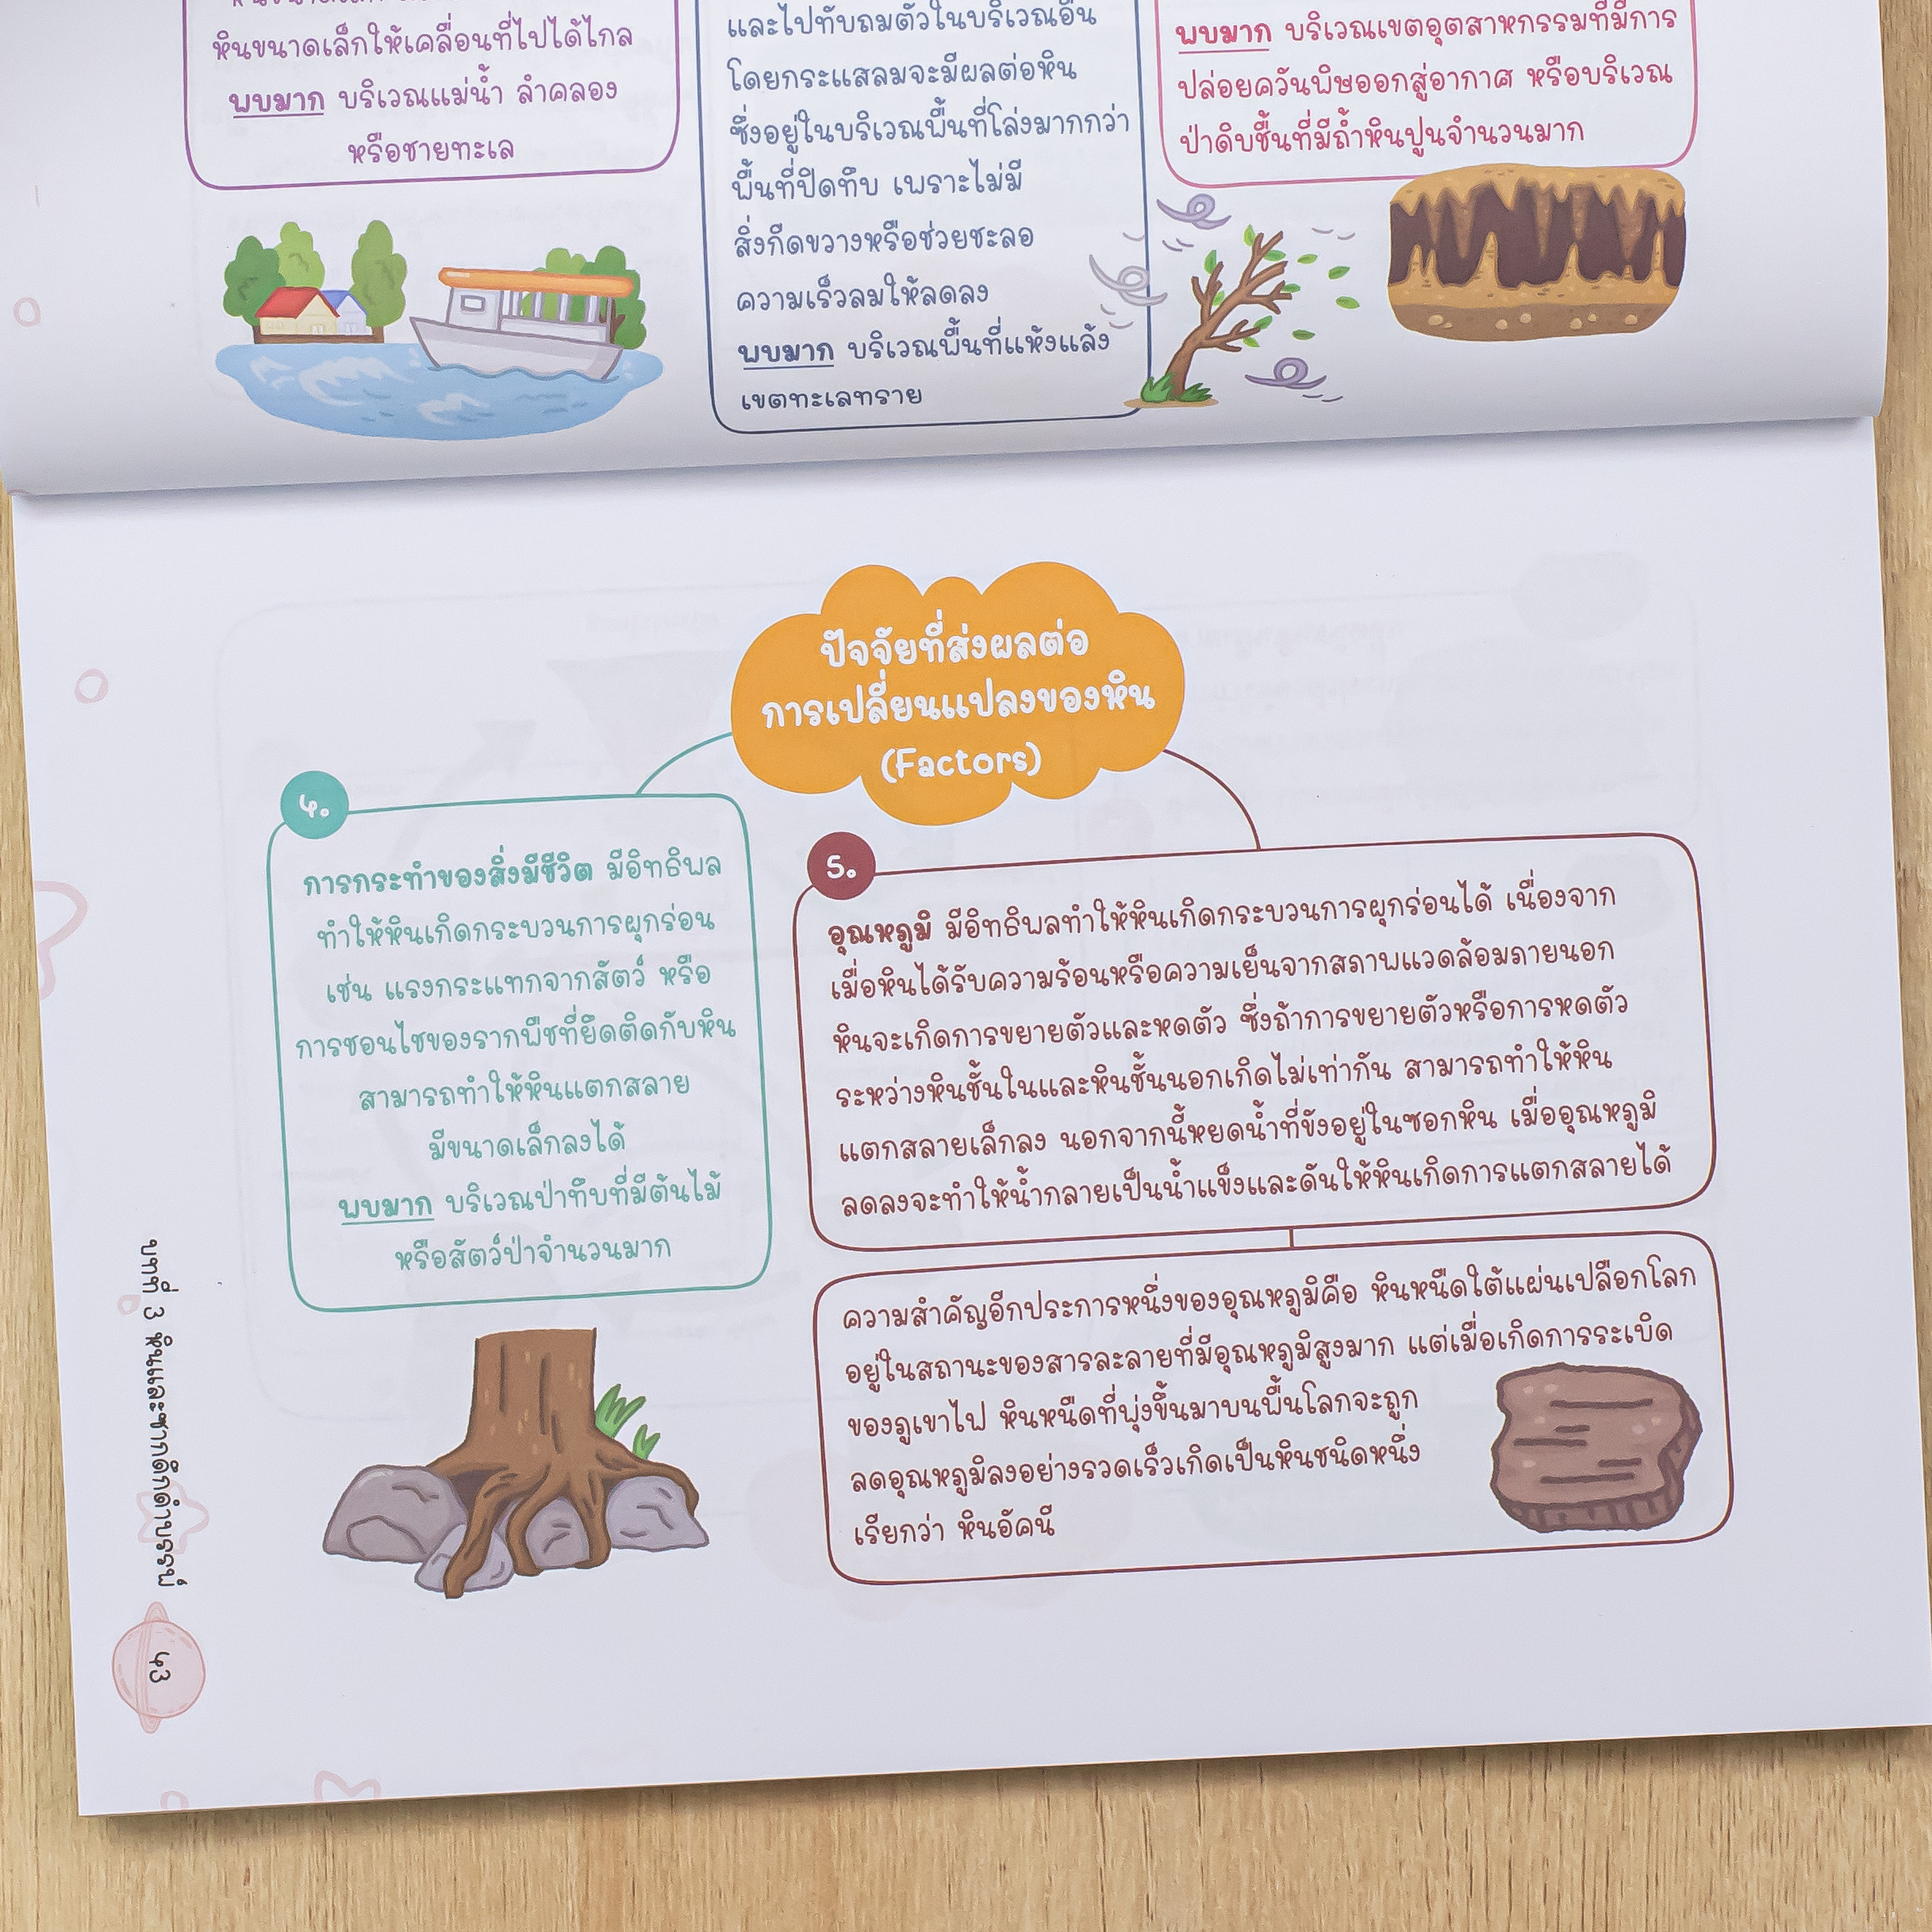 หินขนาดเล็กให้เคลื่อนที่ไปได้ไกล
พบมาก บริเวณแม่น้ำ ลำคลอง
หรือชายทะเล
และไปทับถมตัวในบริเวณอื่น
โดยกระแสลมจะมีผลต่อหิน
ซึ่งอยู่ในบริเวณพื้นที่โล่งมากกว่า
พื้นที่ปิดทึบ เพราะไม่มี
สิ่งกีดขวางหรือช่วยชะลอ
ความเร็วลมให้ลดลง
พบมาก บริเวณพื้นที่แห้งแล้ง
เขตทะเลทราย
พบมาก บริเวณเขตอุตสาหกรรมที่มีการ
ปล่อยควันพิษออกสู่อากาศ หรือบริเวณ
ป่าดิบชื้นที่มีถ้ำหินปูนจำนวนมาก
ปัจจัยที่ส่งผลต่อ
การเปลี่ยนแปลงของหิน
(Factors)
4.
การกระทำของสิ่งมีชีวิต มีอิทธิพล
ทำให้หินเกิดกระบวนการผุกร่อน
เช่น แรงกระแทกจากสัตว์ หรือ
การชอนไชของรากพืชที่ยึดติดกับหิน
สามารถทำให้หินแตกสลาย
มีขนาดเล็กลงได้
พบมาก บริเวณป่าทึบที่มีต้นไม้
หรือสัตว์ป่าจำนวนมาก
5.
อุณหภูมิ มีอิทธิพลทำให้หินเกิดกระบวนการผุกร่อนได้ เนื่องจาก
เมื่อหินได้รับความร้อนหรือความเย็นจากสภาพแวดล้อมภายนอก
หินจะเกิดการขยายตัวและหดตัว ซึ่งถ้าการขยายตัวหรือการหดตัว
ระหว่างหินชั้นในและหินชั้นนอกเกิดไม่เท่ากัน สามารถทำให้หิน
แตกสลายเล็กลง นอกจากนี้หยดน้ำที่ขังอยู่ในซอกหิน เมื่ออุณหภูมิ
ลดลงจะทำให้น้ำกลายเป็นน้ำแข็งและดันให้หินเกิดการแตกสลายได้
ความสำคัญอีกประการหนึ่งของอุณหภูมิคือ หินหนืดใต้แผ่นเปลือกโลก
อยู่ในสถานะของสารละลายที่มีอุณหภูมิสูงมาก แต่เมื่อเกิดการระเบิด
ของภูเขาไฟ หินหนืดที่พุ่งขึ้นมาบนพื้นโลกจะถูก
ลดอุณหภูมิลงอย่างรวดเร็วเกิดเป็นหินชนิดหนึ่ง
เรียกว่า หินอัคนี
บทที่ 3 หินและซากดึกดำบรรพ์
43